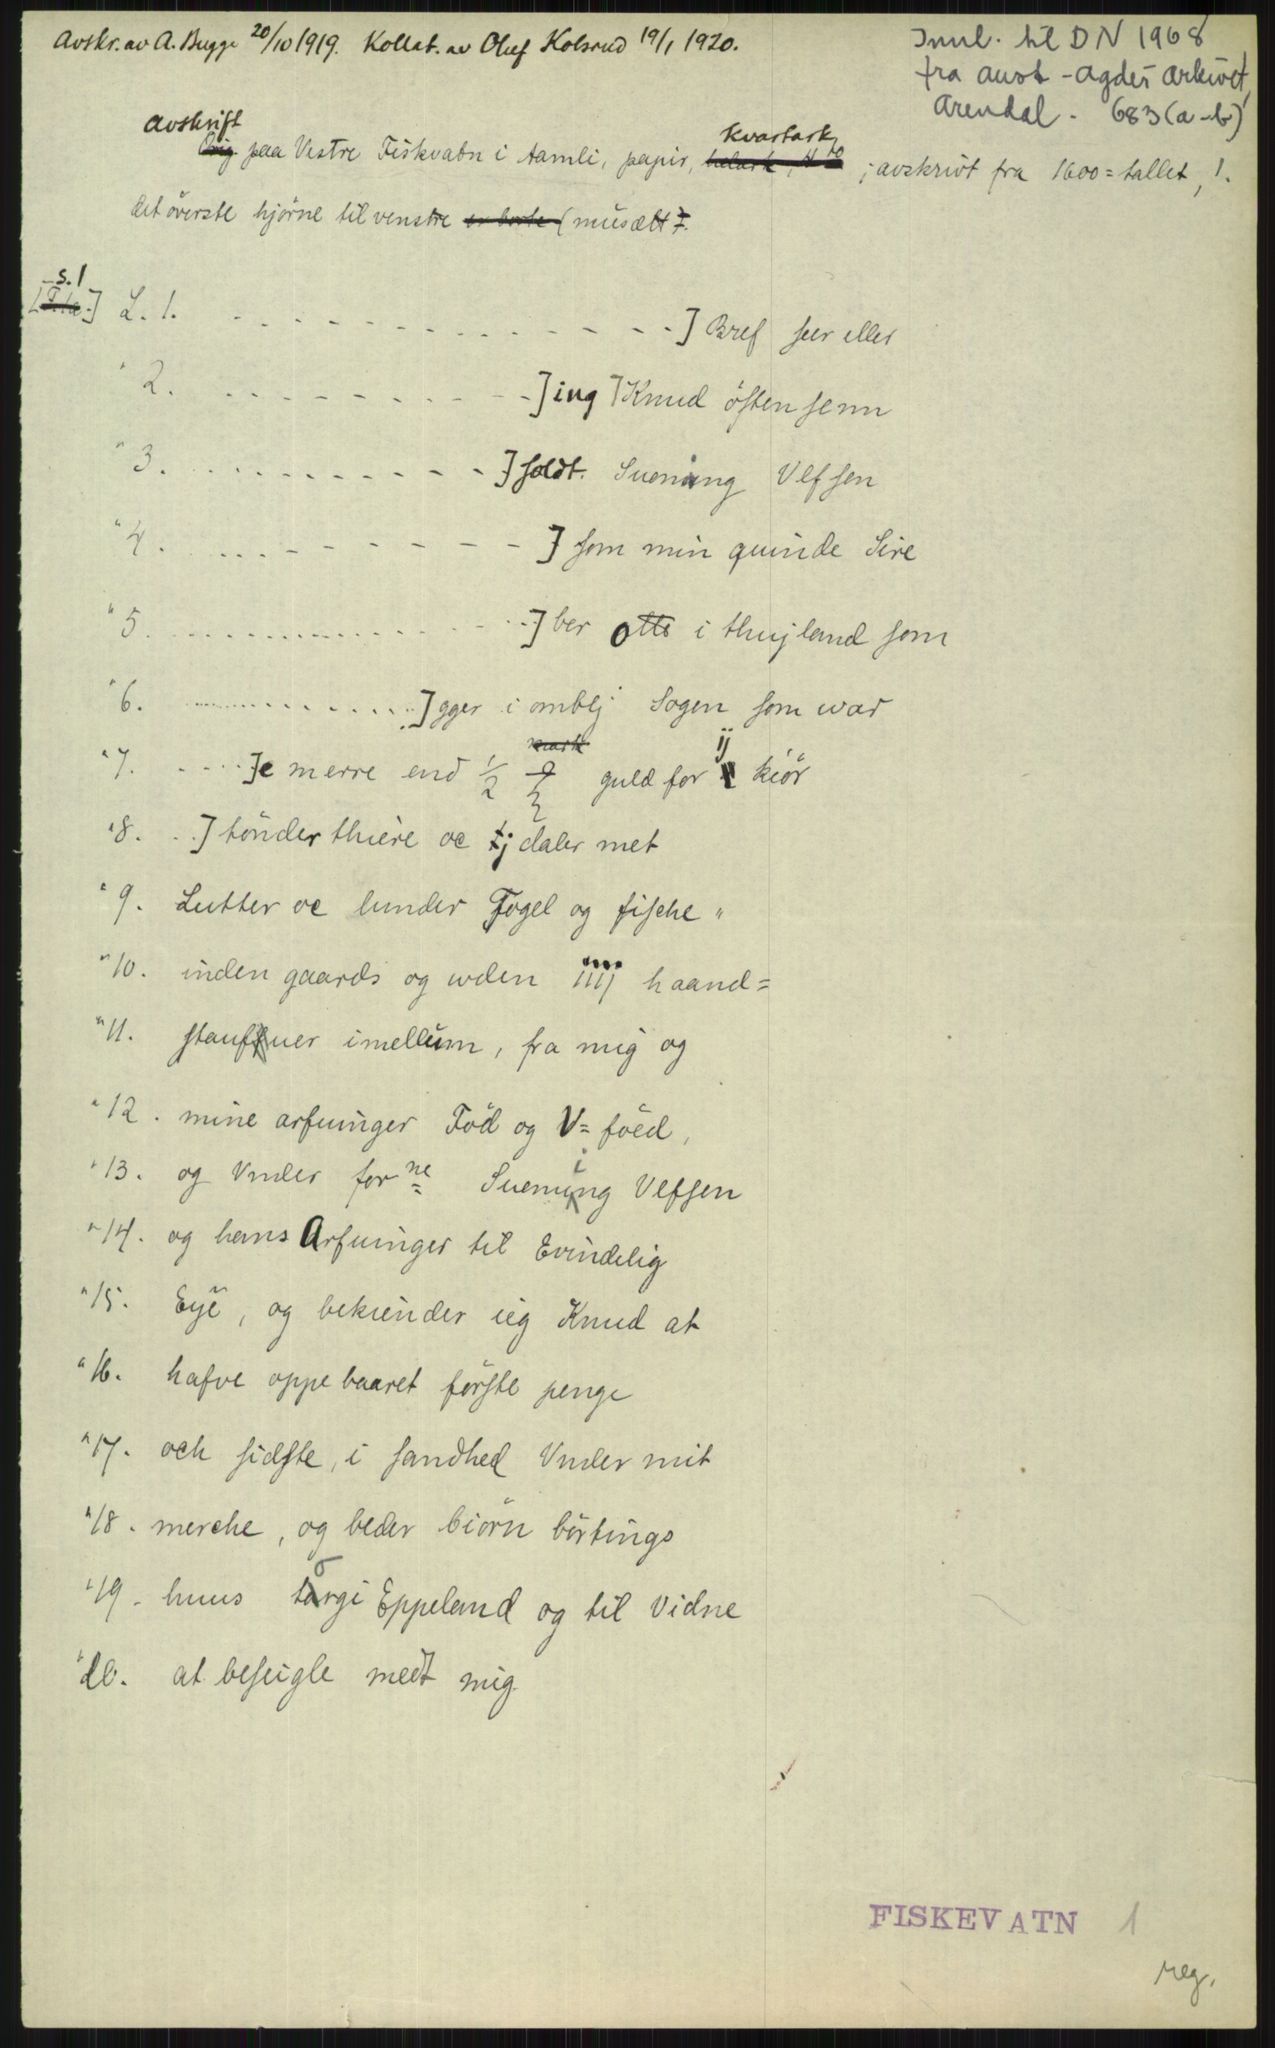 Avskr. av A. Bugge 20/10 1919. Kollat. av Oluf Kolsrud 19/1 1920.
Innl. til DN 1968
fra aust-agder arkivet,
Arendal. 683 (a-b)
avskrift
Orig. paa Vestre Fiskvatn i Aamli, papir, kvartark ; avskrivt fra 1600=tallet, !.
det överste hjörne til venstre er borte (musætt).
s. 1
L. 1. - - - ] Bref seer eller
" 2. - - - ] ing ] Knud östensenn
" 3. - - - ] soldt. Suening Vlfsen
" 4. - - - ] som min quinde Sire
" 5. - - - ] ber otte i thujland som
" 6. - - - ] gger i omblj Sogen som war
" 7. - - - ] e merre end 1/2 guld for ij kiör
" 8. - - ] tönder thiere oc tj daler met
" 9. Lutter oc lunder Fogel og fische "
" 10. inden gaards og uden iiij haand=
" 11. stauffuer imellum, fra mig og
" 12. mine arfuinger Föd og V=föed,
" 13. og Vnder for ne Suening Vlfsen
" 14. og hans Arfuinger til Evindelig
" 15. Eye, og bekiender ieg Knud at
" 16. hafve oppebaaret förste penge
" 17. och sidste, i sandhed Vnder mit
" 18. merche, og beder biörn börtings
" 19. huus torgi Eppeland og til Vidne
" 20. at beseigle medt mig.
FISKEVATN 1
reg.